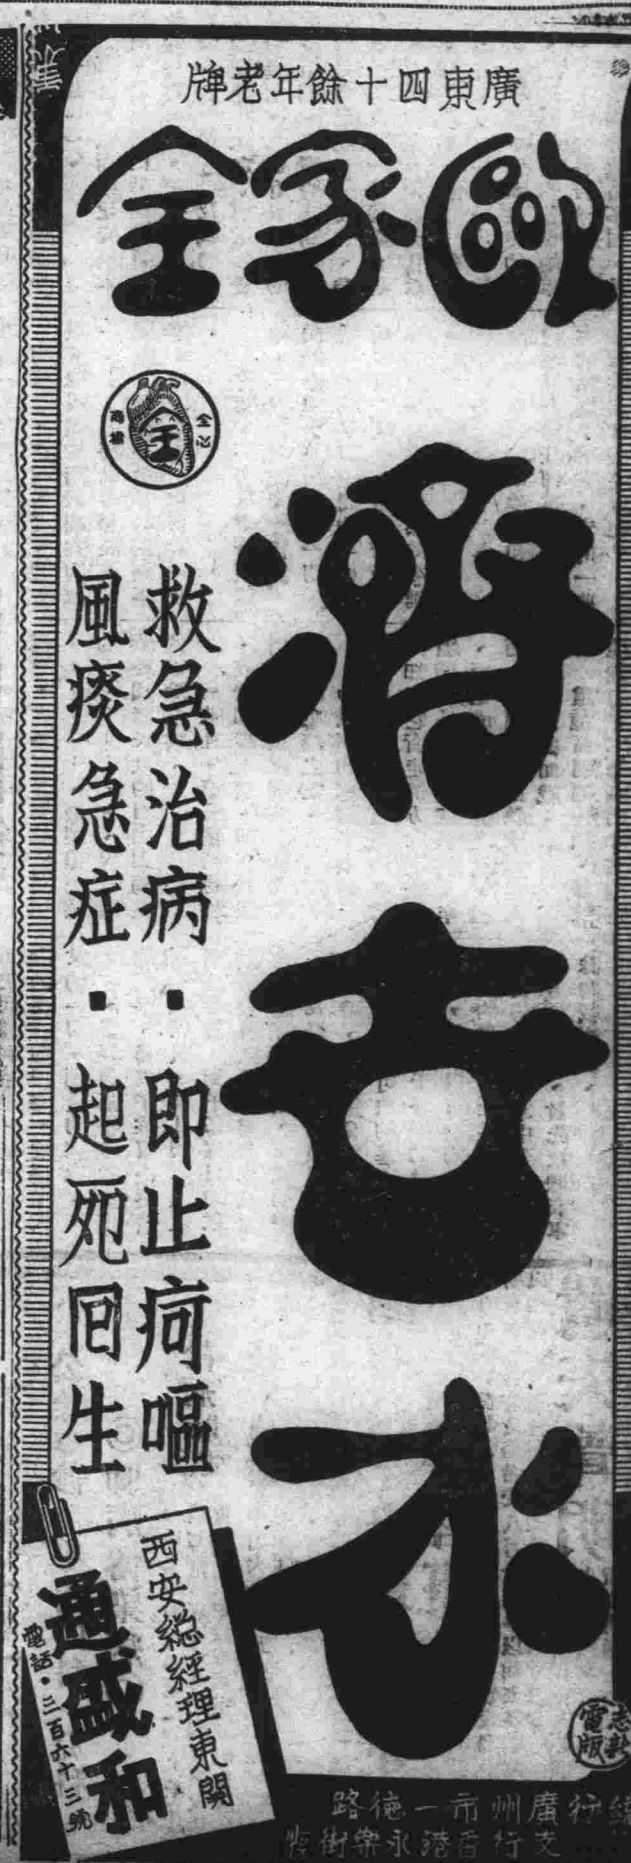 廣東四十餘年老牌
歐家全
濟眾水
全心
商標
全
救急治病．即止疴嘔
風痰急症．起死回生
西安總經理東關
通盛和
電話．三百六十三號
總行廣州市一德路
支行香港永樂街
電版